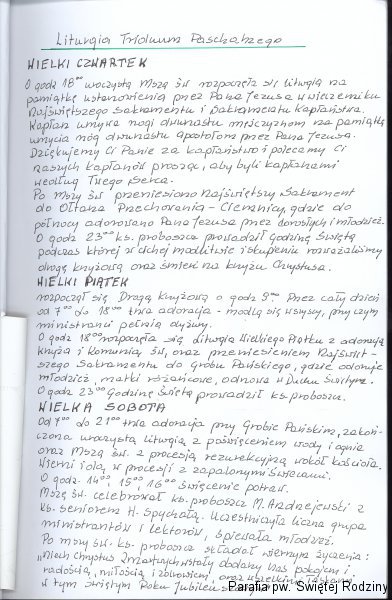 Liturgia Triduum Paschalnego
WIELKI CZWARTEK
O godz 18⁰⁰ uroczystą Mszą św rozpoczęła się Liturgia na
pamiątkę ustanowienia przez Pana Jezusa w wieczerniku
Najświętszego Sakramentu i Sakramentu Kapłaństwa.
Kapłan umywa nogi dwunastu mężczyznom na pamiątkę
umycia nóg dwunastu apostołom przez Pana Jezusa.
Dziękujemy Ci Panie za kapłaństwo i polecamy Ci
naszych kapłanów prosząc, aby byli kapłanami
według Twego Serca.
Po Mszy św przeniesiono Najświętszy Sakrament
do Ołtarza Przechowania - Ciemnicy, gdzie do
północy adorowano Pana Jezusa przez dorosłych i młodzież.
O godz 23⁰⁰ ks. proboszcz prowadził godzinę Świętą
podczas której w cichej modlitwie i skupieniu rozważaliśmy
drogę krzyżową oraz śmierć na krzyżu Chrystusa.
WIELKI PIĄTEK
rozpoczął się Drogą Krzyżową o godz 9⁰⁰ Przez cały dzień
od 7⁰⁰ do 18⁰⁰ trwa adoracja - modlą się wszyscy, przy czym
ministranci pełnią dyżury.
O godz 18⁰⁰ rozpoczęła się Liturgia Wielkiego Piątku z adoracją
Krzyża i Komunią św, oraz przeniesieniem Najświęt-
szego Sakramentu do Grobu Pańskiego, gdzie adoruje
młodzież, matki różańcowe, odnowa w Duchu Świętym.
O godz 23⁰⁰ Godzinę Świętą prowadził ks. proboszcz.
WIELKA SOBOTA
Od 7⁰⁰ do 21⁰⁰ trwa adoracja przy Grobie Pańskim, zakoń-
czona uroczystą liturgią z poświęceniem wody i ognia
oraz Mszą św. z procesją rezurekcyjną wokół kościoła.
Wierni idą w procesji z zapalonymi świecami.
O godz. 14⁰⁰, 15⁰⁰, 16⁰⁰ święcenie potraw.
Mszę św. celebrował ks. proboszcz M. Andrzejewski z
ks. seniorem H. Spychałą. Uczestniczyła liczna grupa
ministrantów i lektorów, śpiewała młodzież.
Po mszy św. ks. proboszcz składał wiernym życzenia:
"Niech Chrystus Zmartwychwstały obdarzy Was pokojem i
radością, miłością i zdrowiem, oraz wszelkimi łaskami
w tym świętym Roku Jubileusz
Parafia pw. Świętej Rodziny